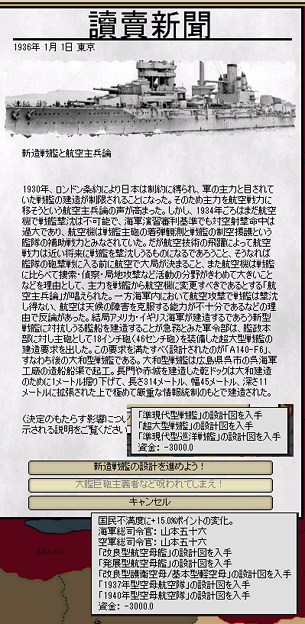 讀賣新聞
1936年 1月 1日 東京
新造戦艦と航空主兵論
1930年、ロンドン条約により日本は制約に縛られ、軍の主力と目されて
いた戦艦の建造が制限されることになった。そのため航空戦力に移
そうという航空主兵論の声が高まった。しかし、1934年ごろはまだ航空
機で戦艦撃沈は不可能で、海軍演習審判基準でも対空射撃命中は
過大であり、航空機は戦艦主砲の着弾観測と戦艦の制空援護という
艦隊の補助戦力とみなされていた。だが航空技術の飛躍によって航空
戦力は近い将来に戦艦を撃沈しうるものになるであろうし、そうなれば
艦隊の砲撃戦に入る前に航空で大局が決まること、また航空機は戦艦
に比べて捜索・偵察・局地攻撃など活動の分野がきわめて大きいこと
などを理由として、主力を戦艦から航空機に変更すべきであるとする「航
空主兵論」が唱えられた。一方海軍内において航空攻撃で戦艦は撃沈
し得ない、航空は天候の障害を克服する能力が不十分であるなどの理
由で反論があった。結局アメリカ・イギリス海軍が建造するであろう新型
戦艦に対抗しうる艦船を建造することが急務とみた軍令部は、艦政本
部に対し主砲として18インチ砲(46センチ砲)を装備した超大型戦艦の
建造要求を出した。この要求を満たすべく設計されたのが「A140-F6」、
すなわち後の大和型戦艦である。大和型戦艦は広島県呉市の呉海軍
工廠の造船船渠で起工。長門や赤城を建造した乾ドックは大和建造
のために1メートル掘り下げて、長さ314メートル、幅45メートル、深さ11
メートルに拡張された上で極めて厳重な情報統制のもとで建造された。
(決定のもたらす影響につい
示される説明をご覧ください
「準現代型戦艦」の設計図を入手
「超大型戦艦」の設計図を入手
「準現代型巡洋戦艦」の設計図を入手
資金: -3000.0
新造戦艦の設計を進めよう!
大艦巨砲主義者など呪われてしまえ!
キャンセル
国民不満度に+15.0%ポイントの変化。
海軍総司令官: 山本五十六
空軍総司令官: 山本五十六
「改良型航空母艦」の設計図を入手
「発展型航空母艦」の設計図を入手
「改良型護衛空母/基本型軽空母」の設計図を入手
「1937年型空母航空隊」の設計図を入手
「1940年型空母航空隊」の設計図を入手
資金: -3000.0